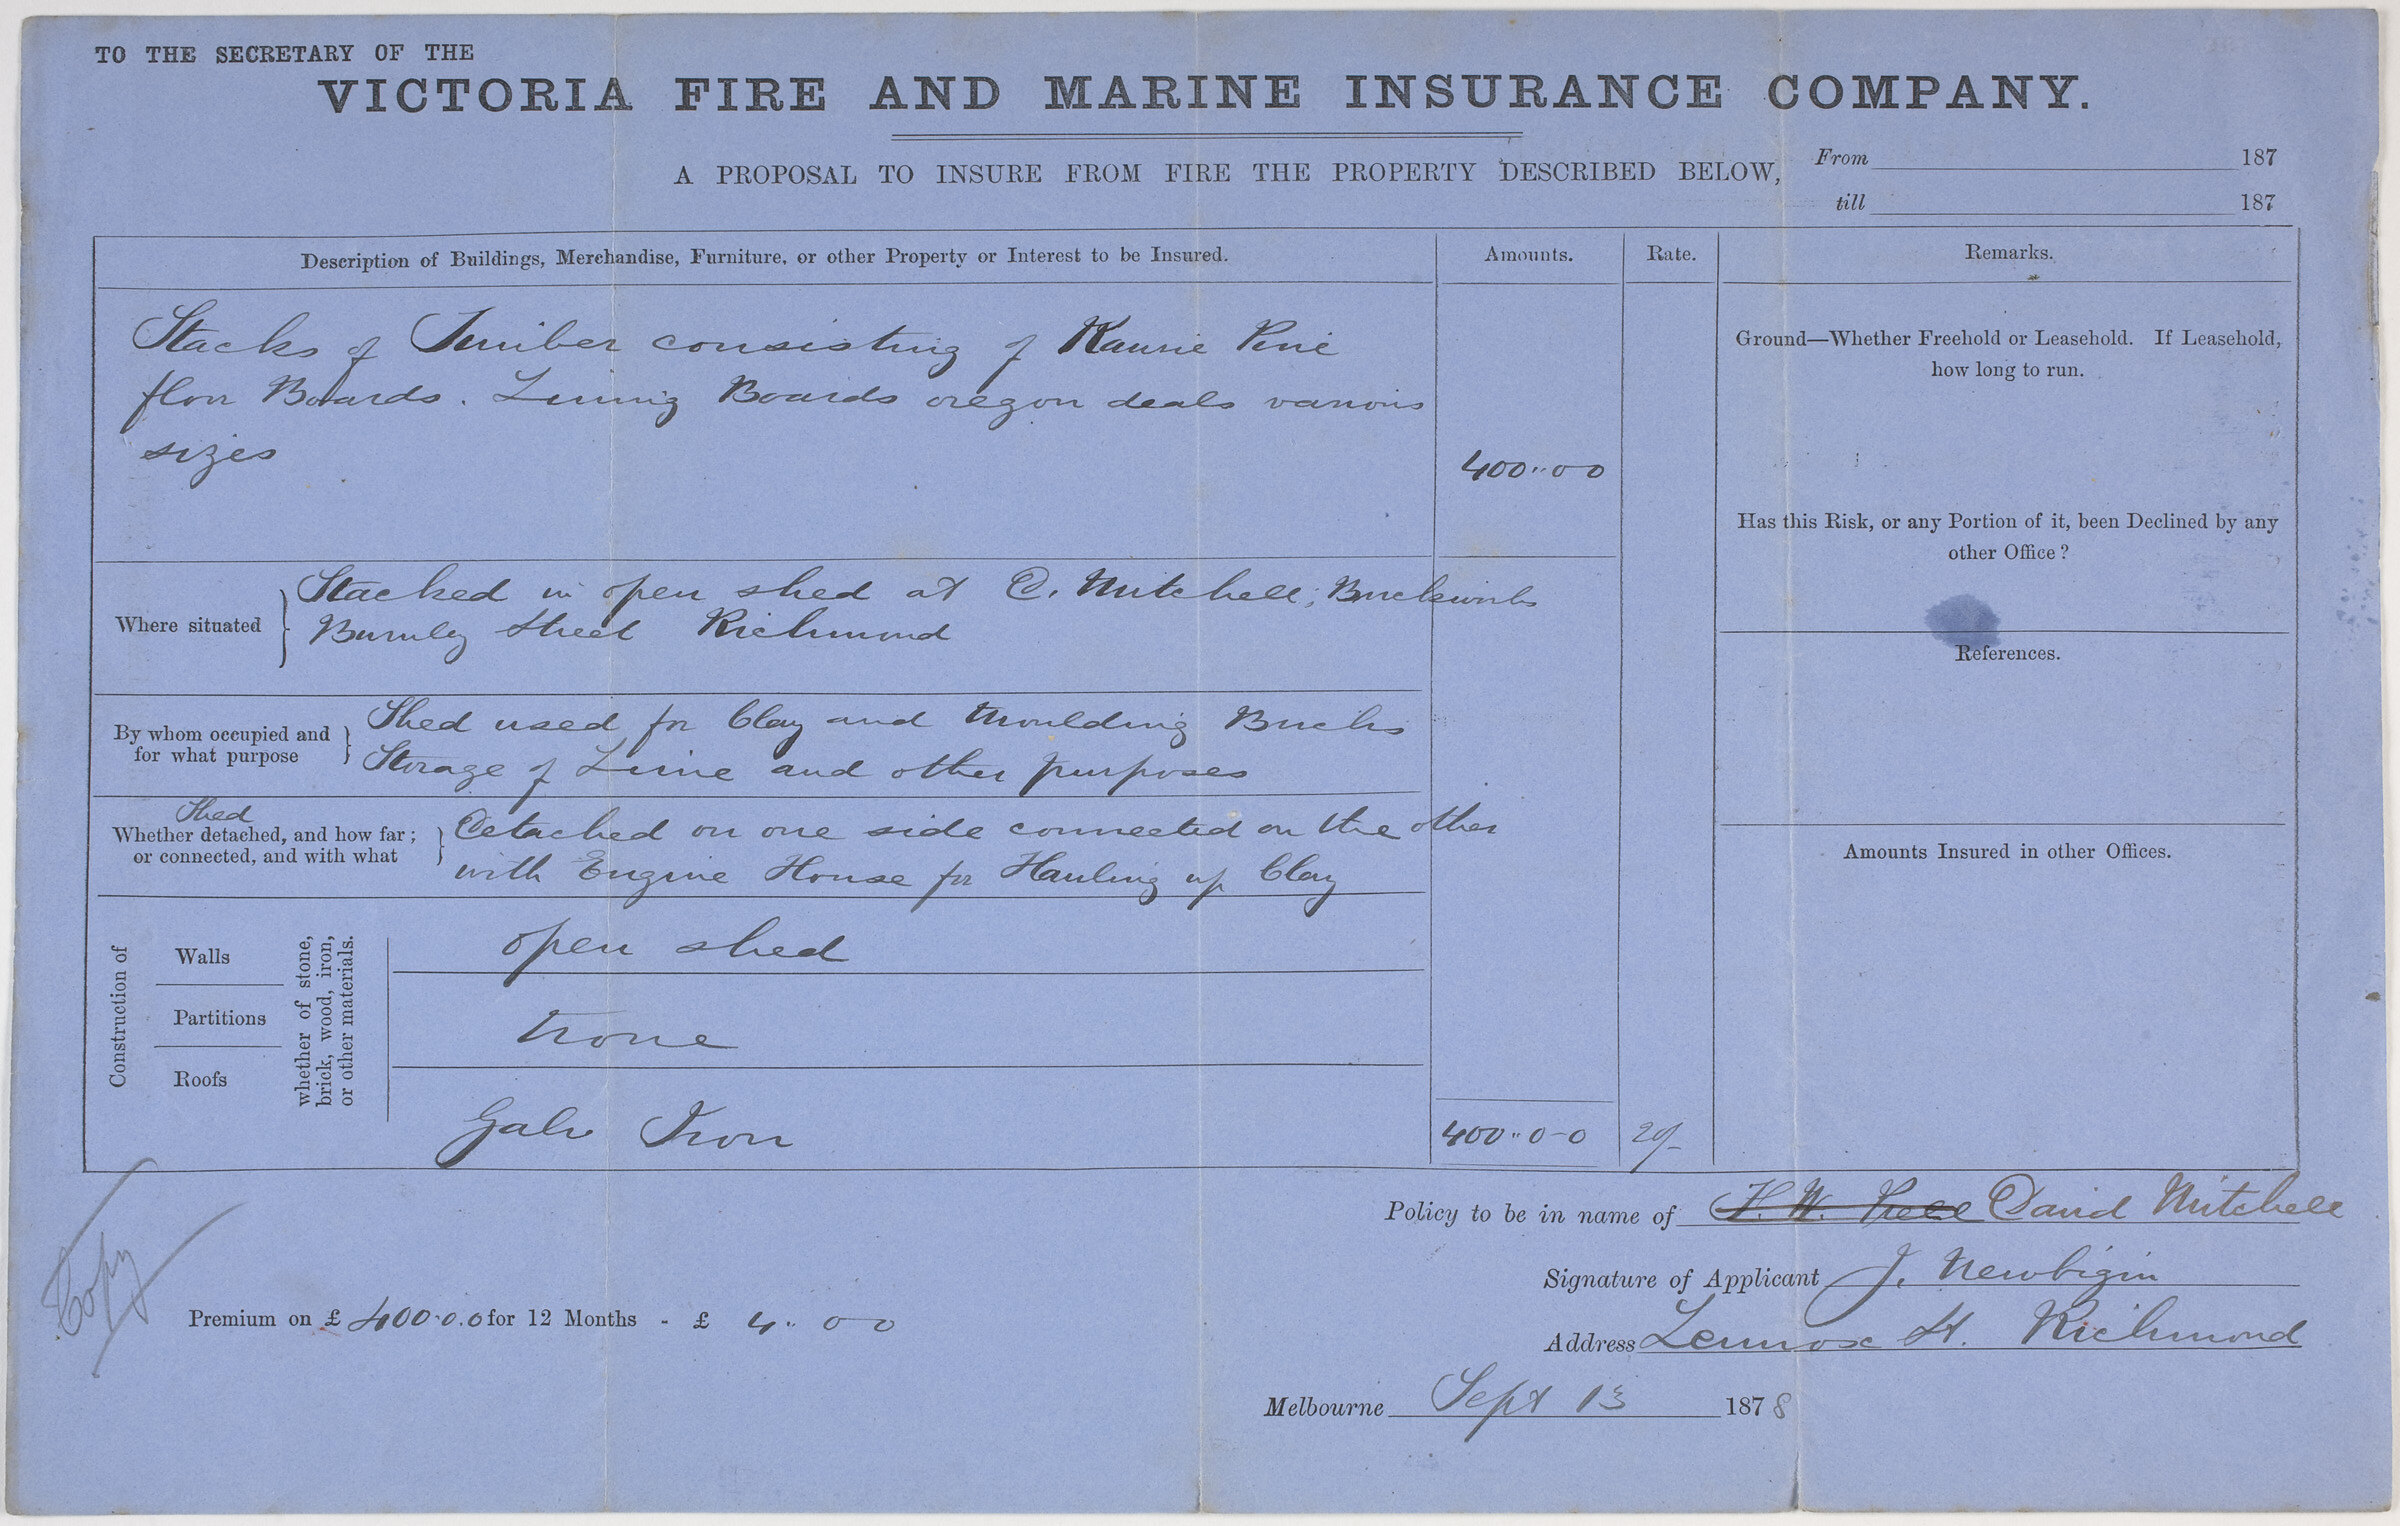 TO THE SECRETARY OF THE
VICTORIA FIRE AND MARINE INSURANCE COMPANY.
A PROPOSAL TO INSURE FROM FIRE THE PROPERTY DESCRIBED BELOW,
From 187
till 187
Description of Buildings, Merchandise, Furniture, or other Property or Interest to be Insured.
Amounts.
Rate.
Remarks.
Stacks of Timber consisting of Kaurie Pine
floor Boards. Lining Boards oregon deals various
sizes
400"00
Ground—Whether Freehold or Leasehold. If Leasehold,
how long to run.
Has this Risk, or any Portion of it, been Declined by any
other Office?
Where situated
Stacked in open shed at D. Mitchell, Brickworks
Burnley Street Richmond
References.
By whom occupied and
for what purpose
Shed used for Clay and Moulding Bricks
Storage of Lime and other purposes
Shed
Whether detached, and how far;
or connected, and with what
Detached on one side connected on the other
with Engine House for Hauling up Clay
Amounts Insured in other Offices.
Construction of
Walls
Partitions
Roofs
whether of stone,
brick, wood, iron,
or other materials.
open shed
None
Galv Iron
400"0-0
20/-
Policy to be in name of David Mitchell
Signature of Applicant J. Newbigin
Address Lennox St. Richmond
Melbourne Sept 13 1878
Copy
Premium on £ 400.0.0 for 12 Months - £ 4"00